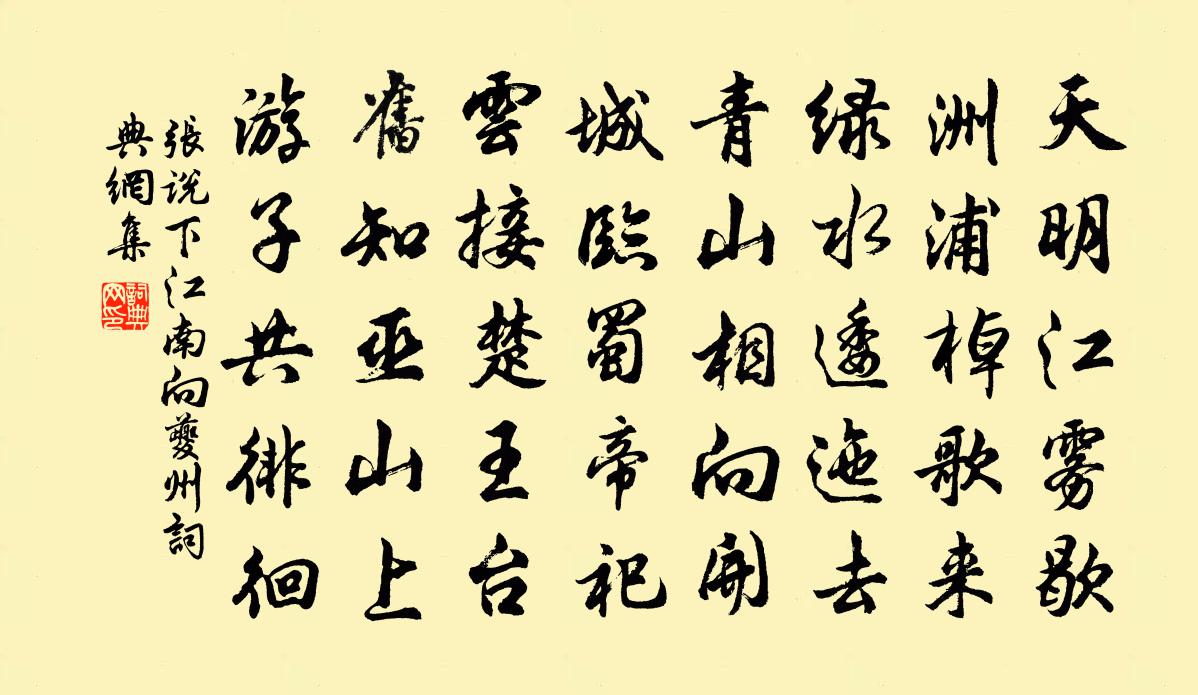 天明江雾歇
洲浦棹歌来
绿水逶迤去
青山相向開
城臨蜀帝祀
雲接楚王台
舊知巫山上
游子共徘徊
張説下江南向夔州詞
典網集
詞典
网印